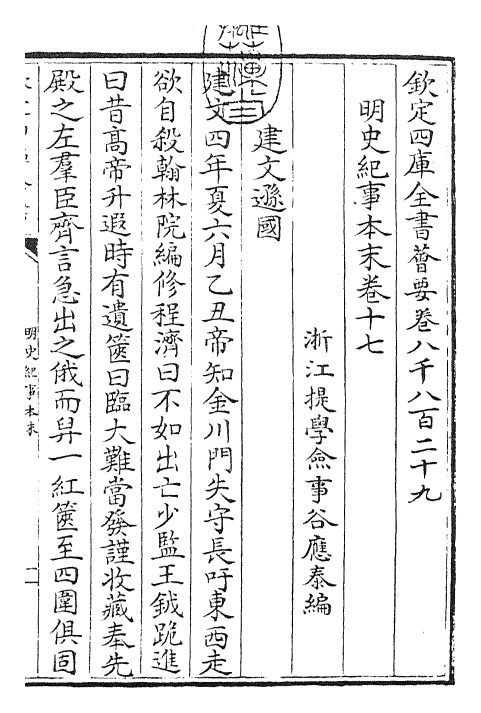 欽定四庫全書薈要卷八千八百二十九
明史紀事本末卷十七
浙江提學僉事谷應泰編
建文遜國
建文四年夏六月乙丑帝知金川門失守長吁東西走
欲自殺翰林院編修程濟曰不如出亡少監王鉞跪進
曰昔髙帝升遐時有遺篋曰臨大難當發謹收藏奉先
殿之左羣臣齊言急出之俄而舁一紅篋至四圍俱固
明史紀事本末
一